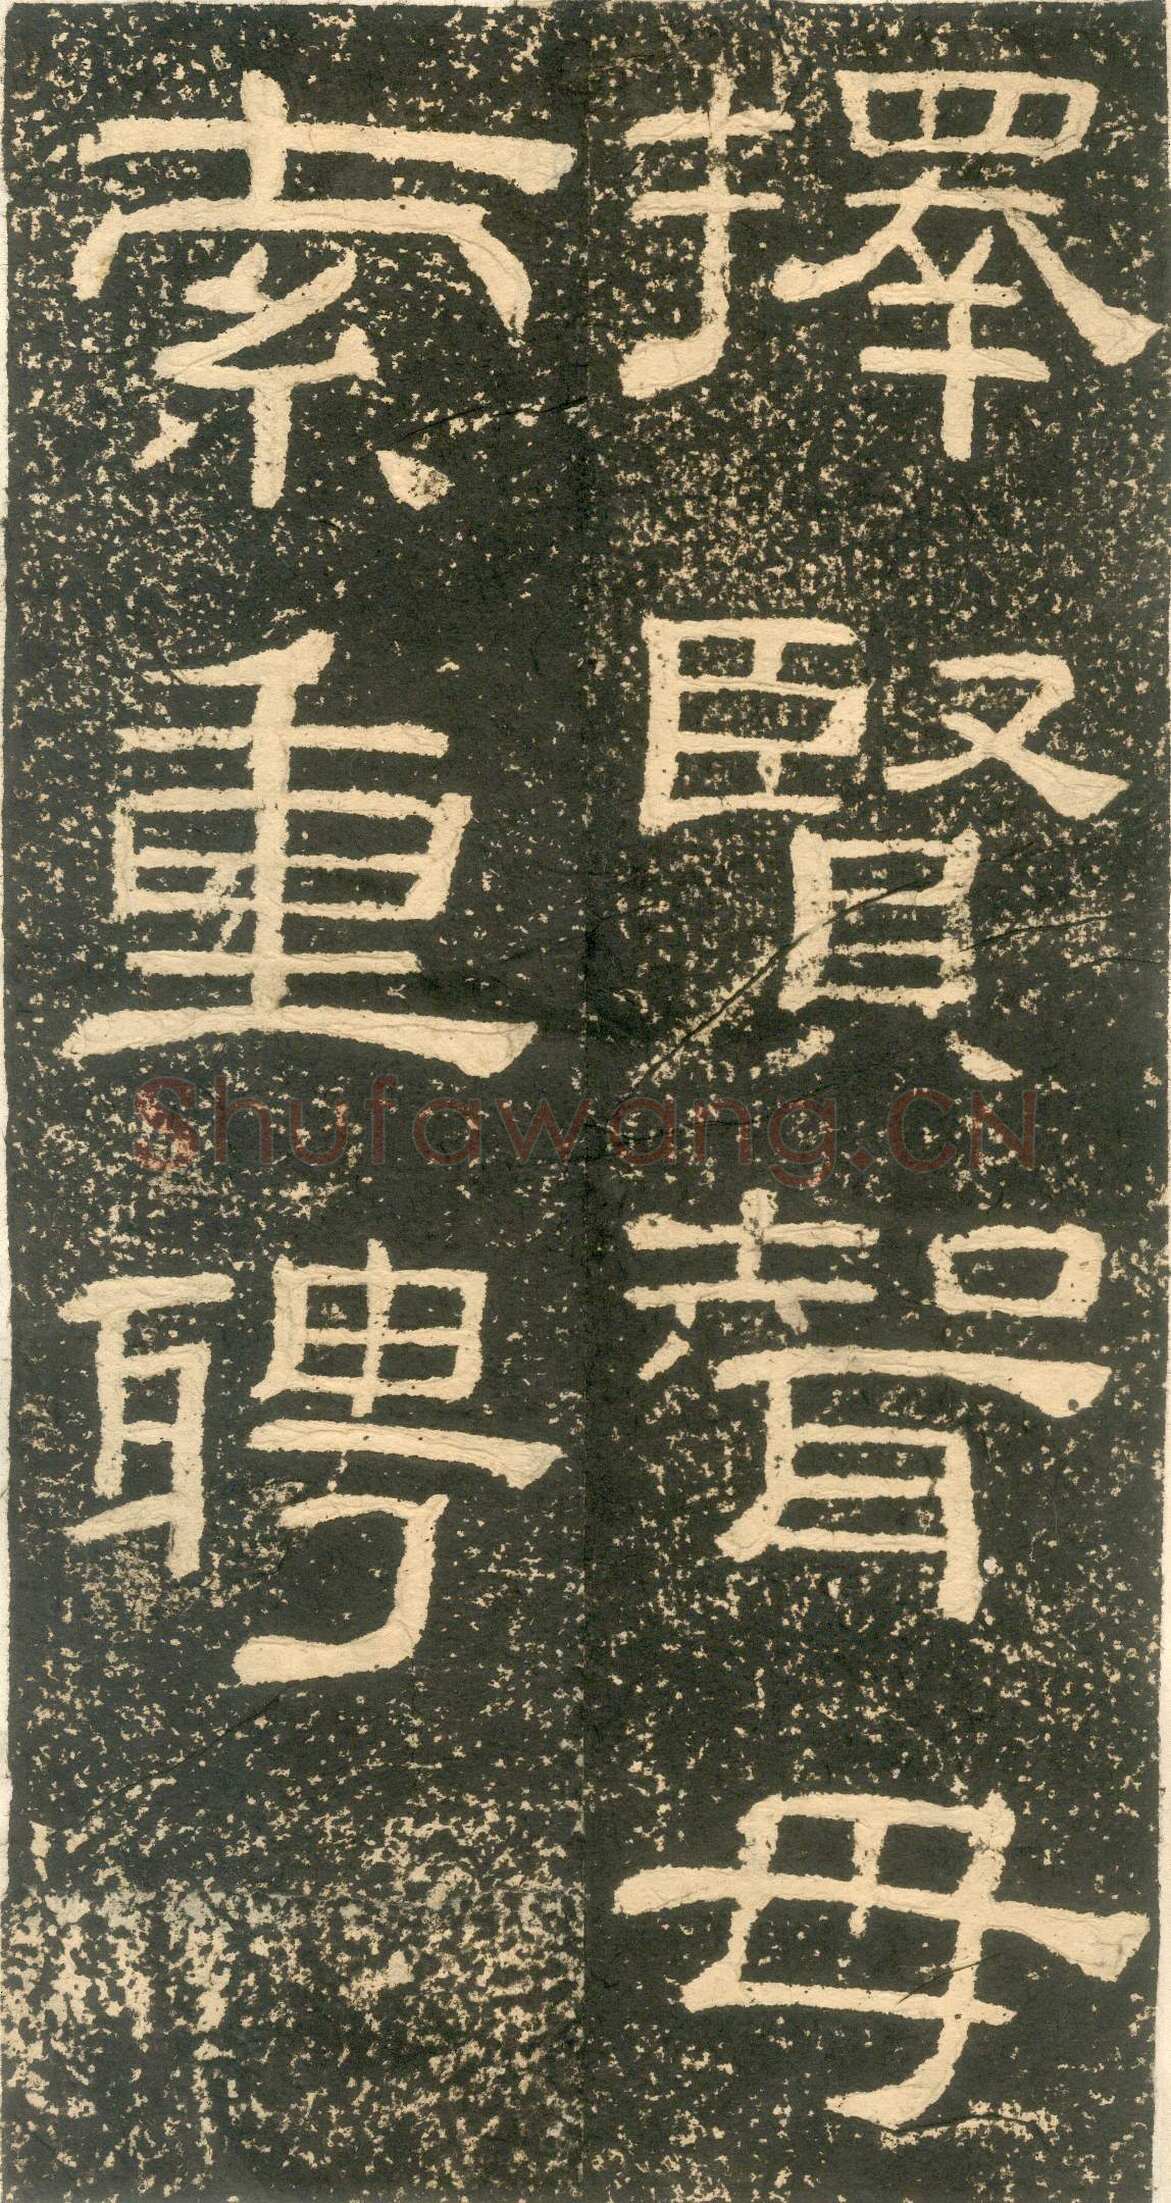 擇賢聟毋
索重聘
Shufawang.CN